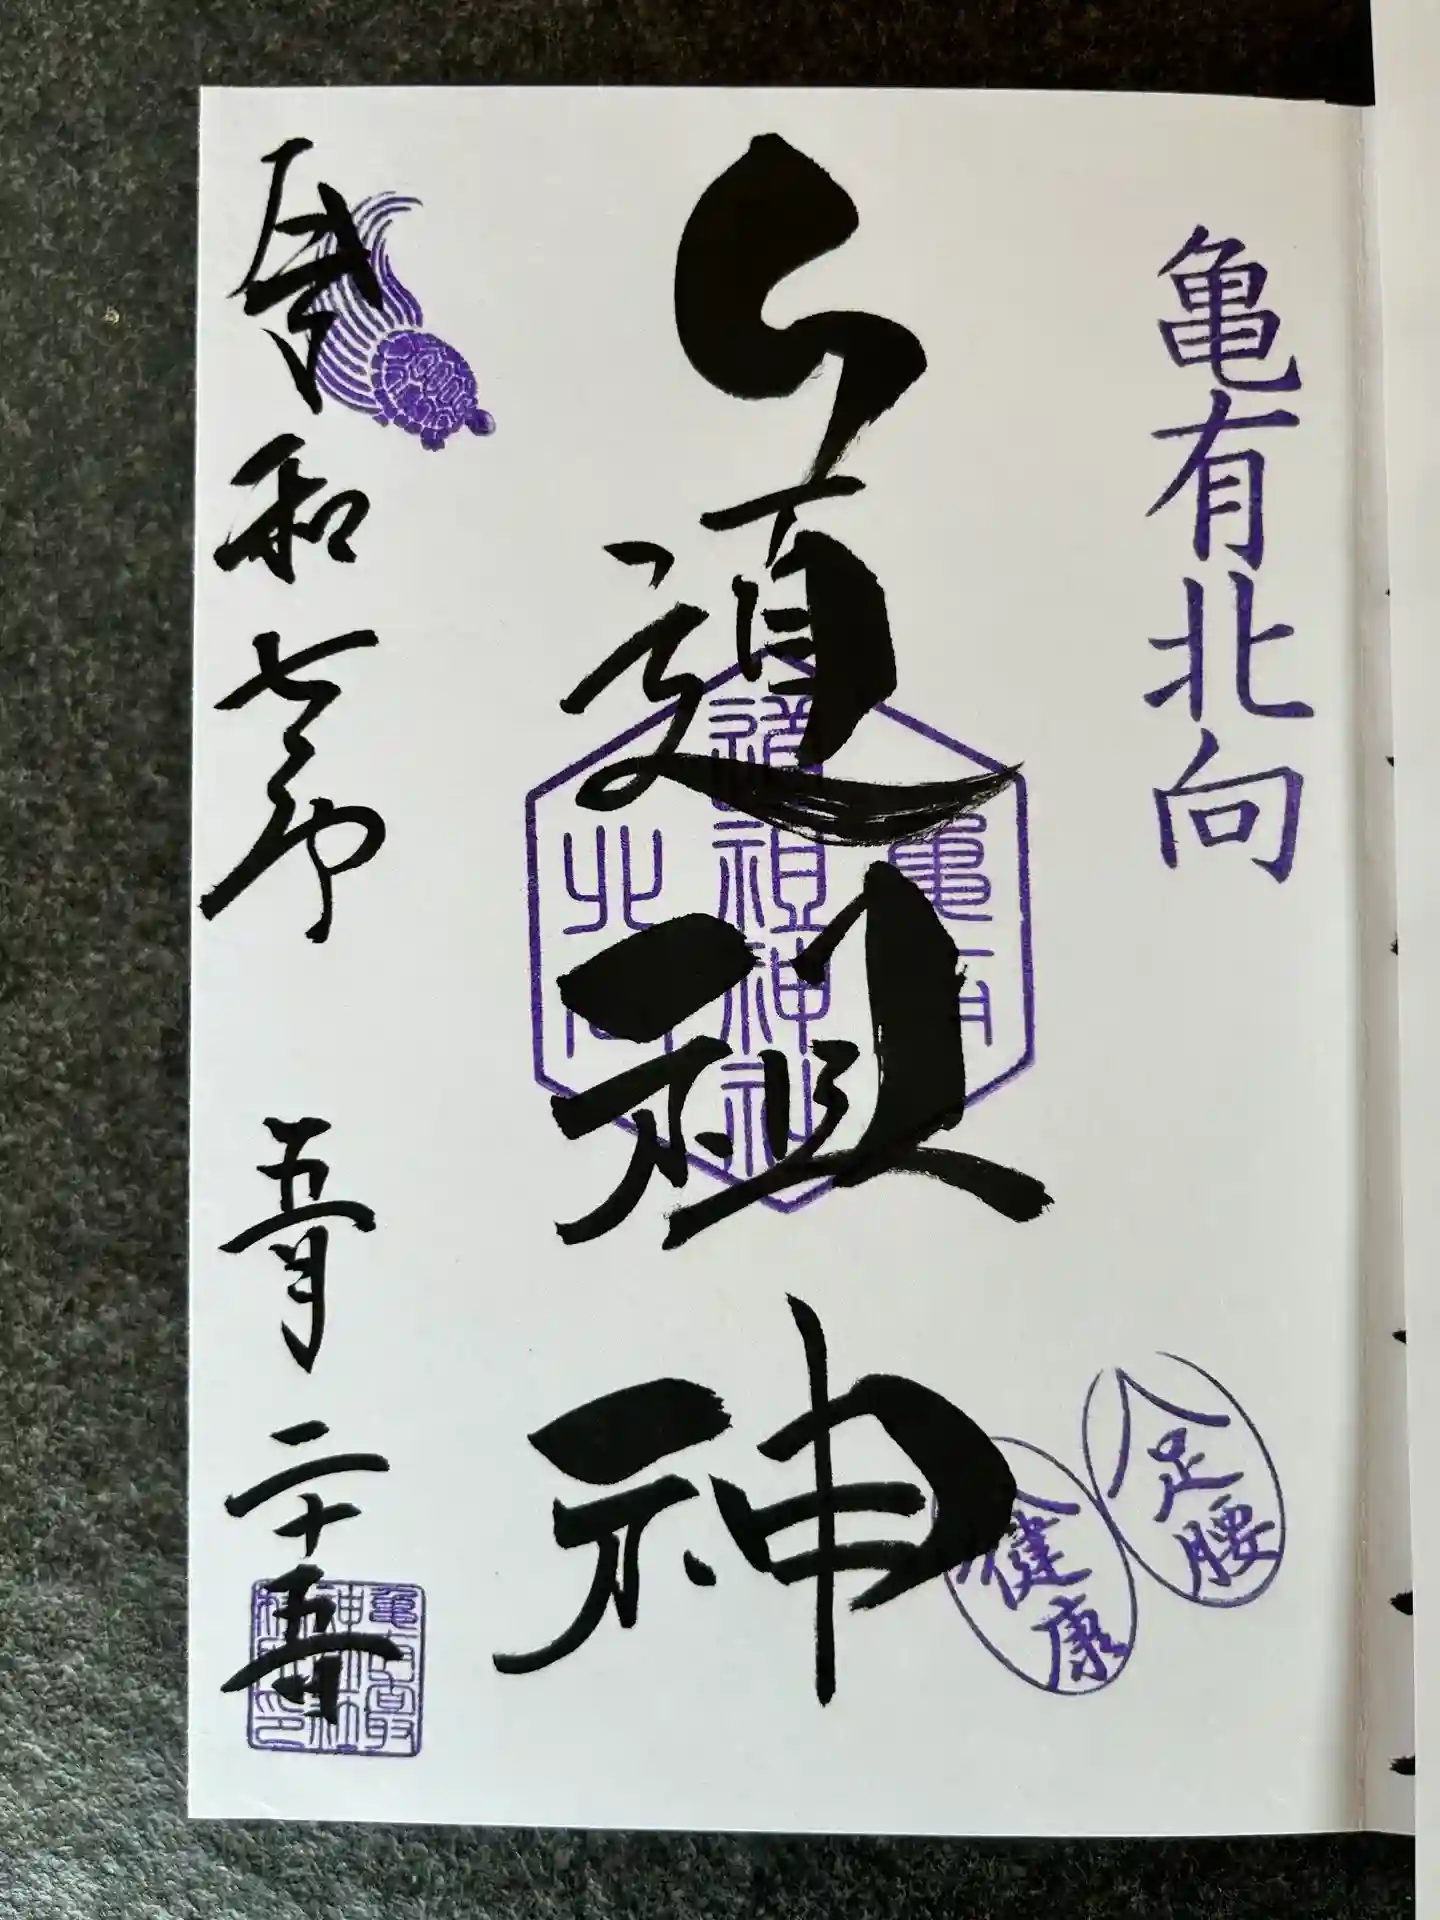 亀有北向
足腰
健康
道祖神
亀有
道祖神社
北向
令和七年 五月二十五日